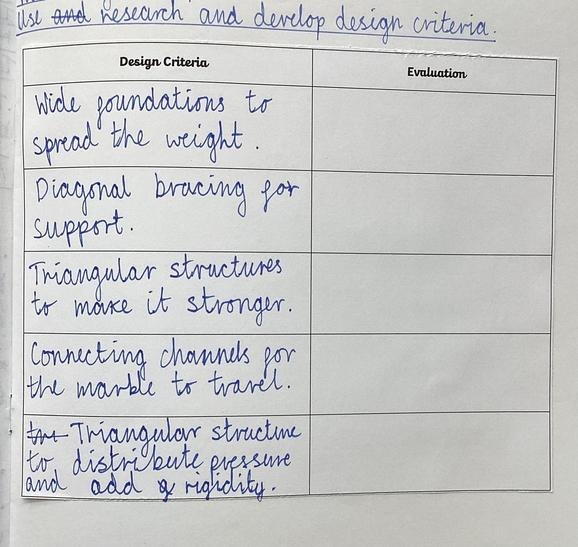 Use and research and develop design criteria.
Design Criteria
Evaluation
Wide foundations to
spread the weight.
Diagonal bracing for
support.
Triangular structures
to make it stronger.
Connecting channels for
the marble to travel.
Triangular structure
to distribute pressure
and add rigidity.